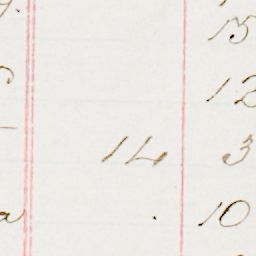 15
12
14 3
a 10